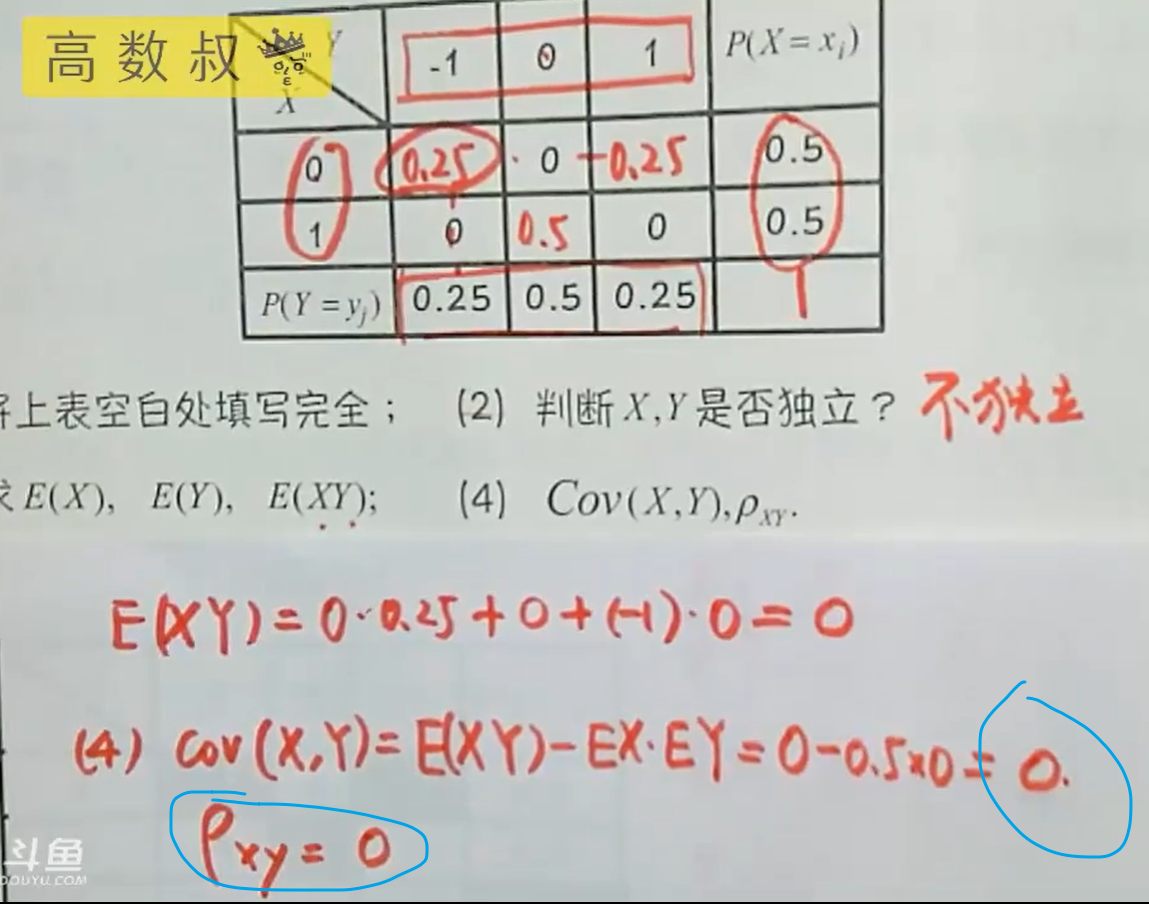 高数叔 Y
-1 0 1 P(X = xᵢ)
X
0 0.25 · 0 0.25 0.5
1 0 0.5 0 0.5
P(Y = yⱼ) 0.25 0.5 0.25 1
上表空白处填写完全； (2) 判断 X,Y 是否独立？ 不独立
E(X), E(Y), E(XY); (4) Cov(X,Y),ρXY.
E(XY) = 0·0.25 + 0 + (-1)·0 = 0
(4) Cov(X,Y) = E(XY) - EX·EY = 0 - 0.5×0 = 0.
ρxy = 0
斗鱼
DOUYU.COM